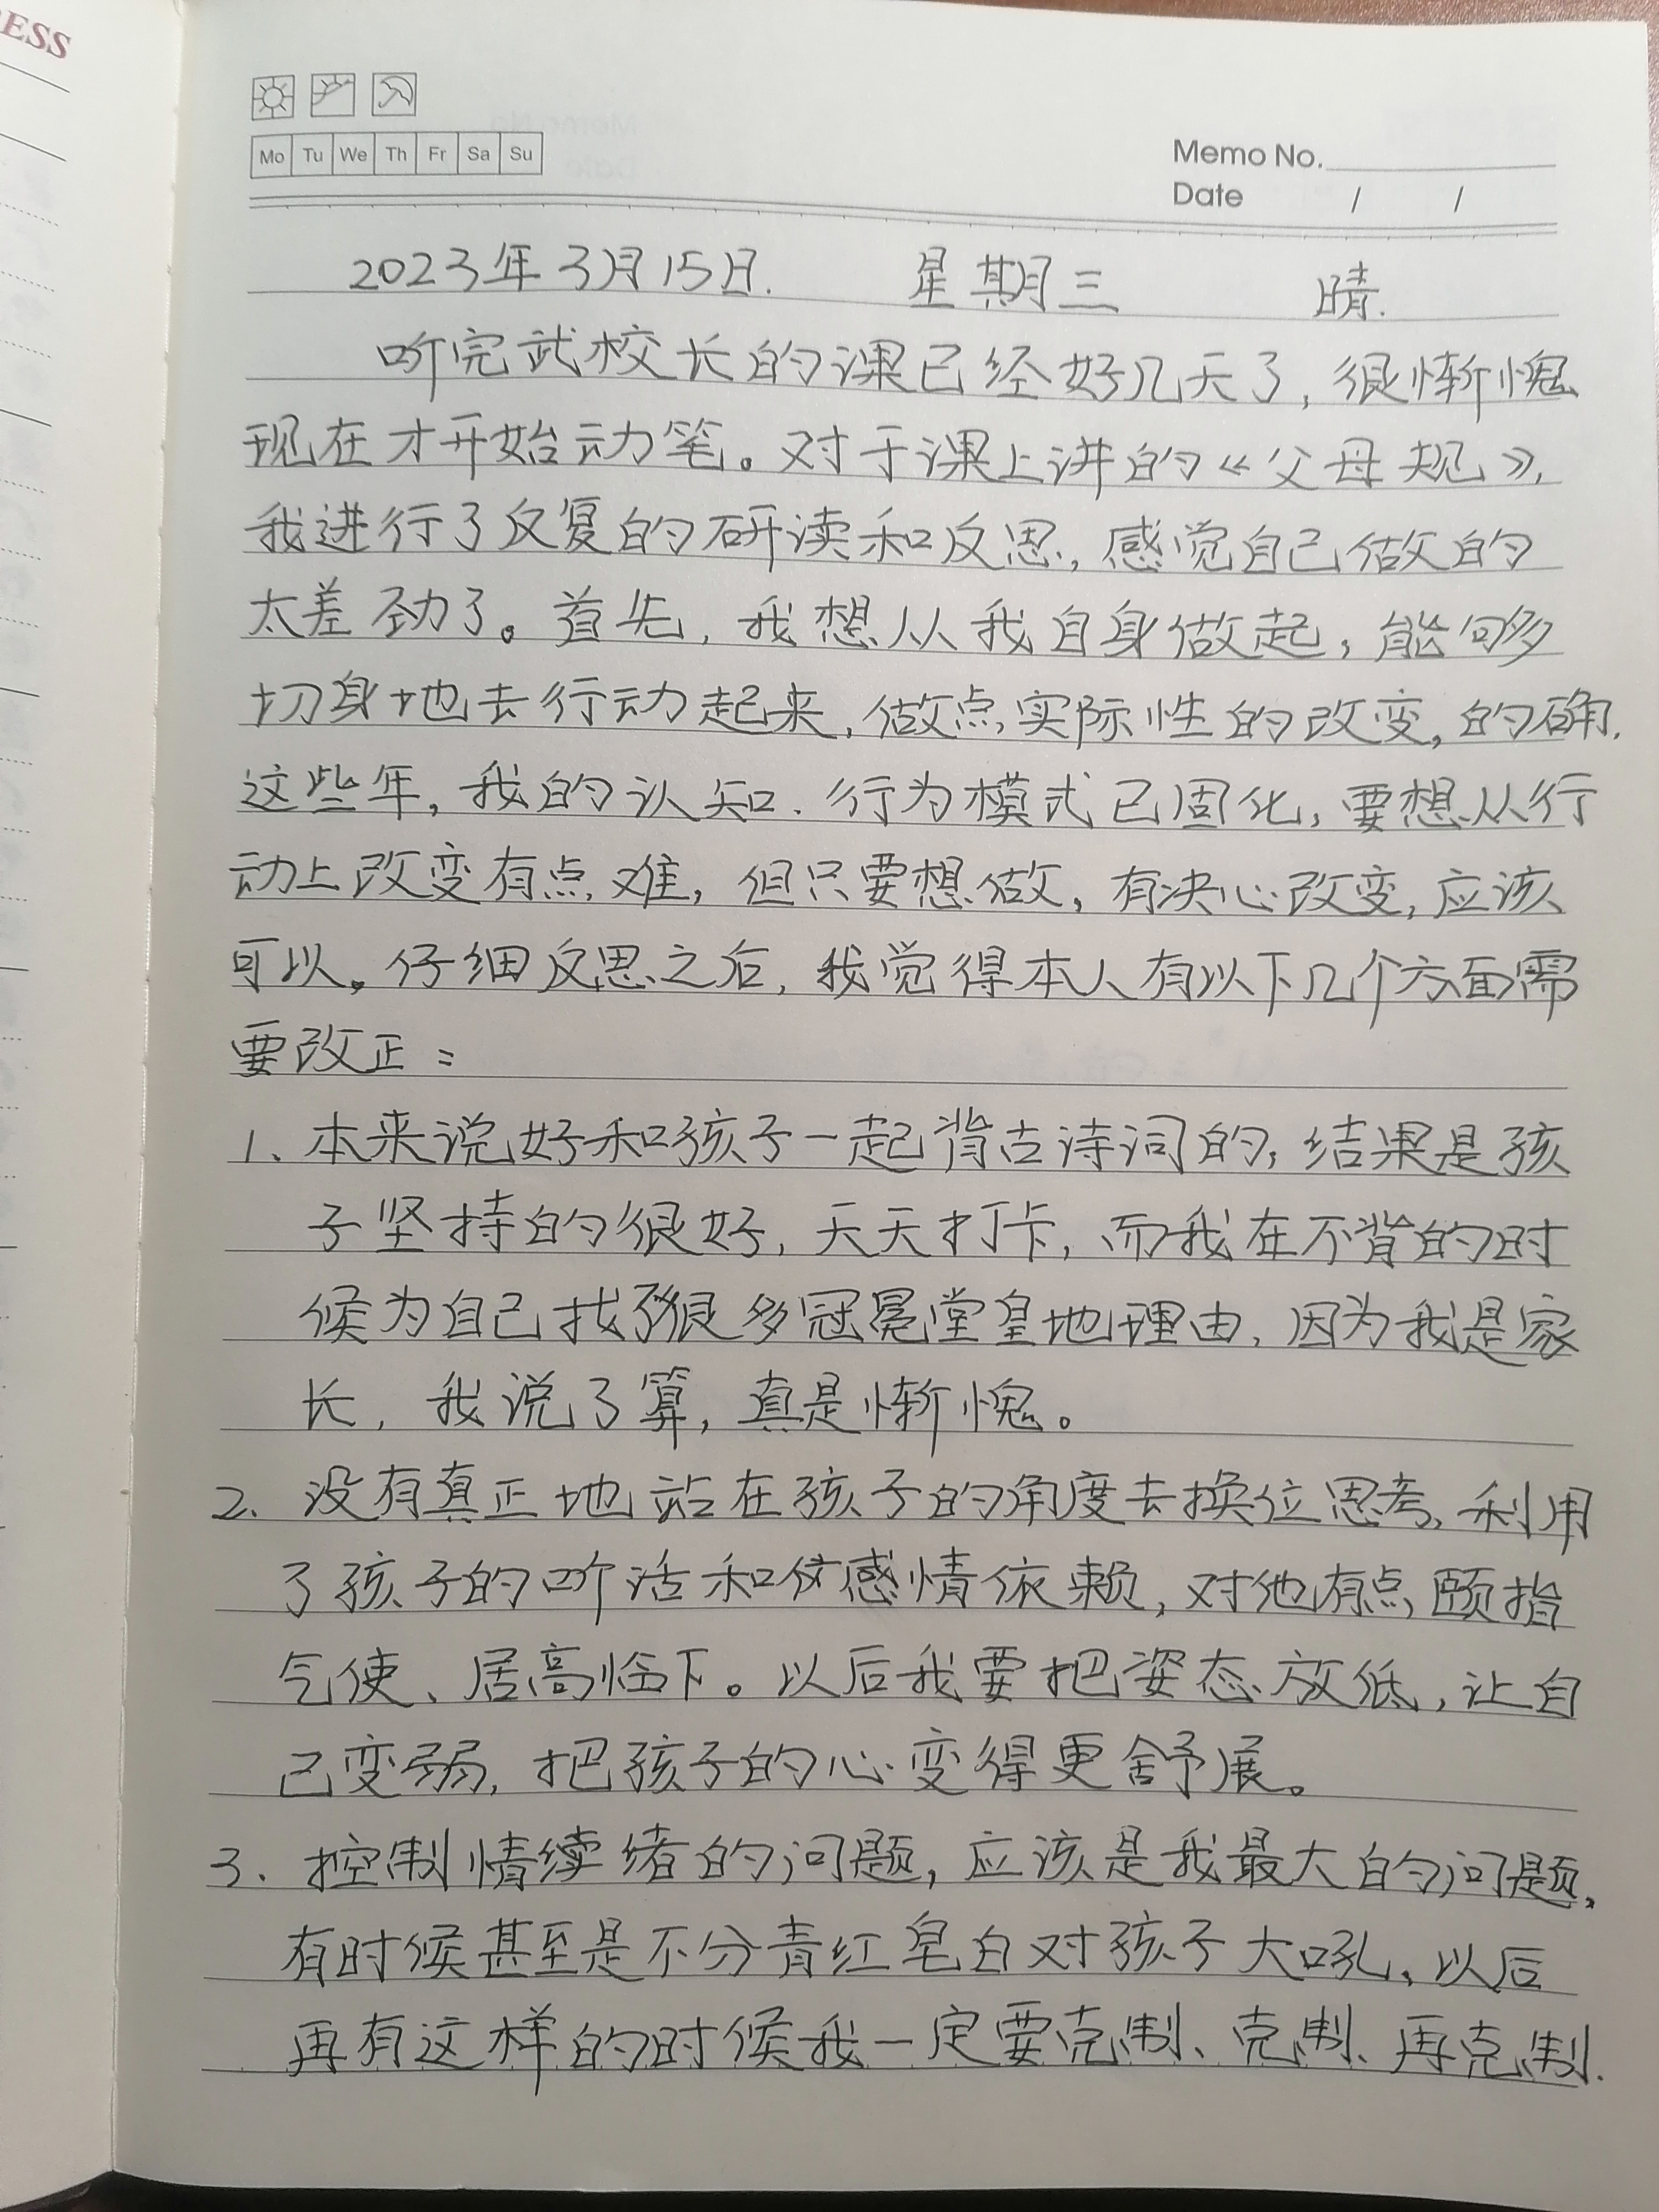 ESS
Mo Tu We Th Fr Sa Su
Memo No.
Date / /
2023年3月15日. 星期三 晴.
听完武校长的课已经好几天了,很惭愧
现在才开始动笔。对于课上讲的《父母规》,
我进行了反复的研读和反思,感觉自己做的
太差劲了。首先,我想从我自身做起,能够多
切身地去行动起来,做点实际性的改变,的确,
这些年,我的认知、行为模式已固化,要想从行
动上改变有点难,但只要想做,有决心改变,应该
可以。仔细反思之后,我觉得本人有以下几个方面需
要改正:
1、本来说好和孩子一起背古诗词的,结果是孩
子坚持的很好,天天打卡,而我在不背的时
候为自己找了很多冠冕堂皇地理由,因为我是家
长,我说了算,真是惭愧。
2、没有真正地站在孩子的角度去换位思考,利用
了孩子的听话和感情依赖,对他有点颐指
气使、居高临下。以后我要把姿态放低,让自
己变弱,把孩子的心变得更舒展。
3、控制情续绪的问题,应该是我最大的问题,
有时候甚至是不分青红皂白对孩子大吼,以后
再有这样的时候我一定要克制、克制、再克制.